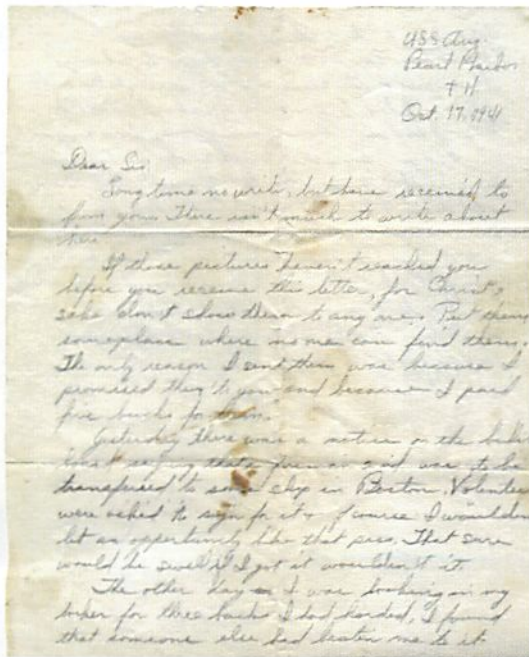 USS Arg.
Pearl Harbor
T H.
Oct. 17, 1941
Dear Sis:
Long time no write, but have received
from you. There isn't much to write about
here.
If those pictures haven't reached you
before you receive this letter, for Christ's
sake don't show them to any one. Put them
someplace where no one can find them.
The only reason I sent them was because I
promised them to you and because I paid
five bucks for them.
Yesterday there was a notice on the
saying that was to be
transfered to some ship in Boston. Volunteers
were asked to sign for it & of course I wouldn't
let an opportunity like that pass. That sure
would be swell if I got it wouldn't it.
The other day as I was looking in my
locker for three bucks I had hoarded, I found
that someone else had beaten me to it